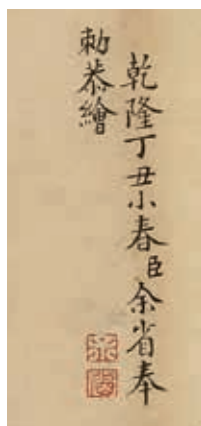 乾隆丁丑小春臣余省奉
勅恭繪